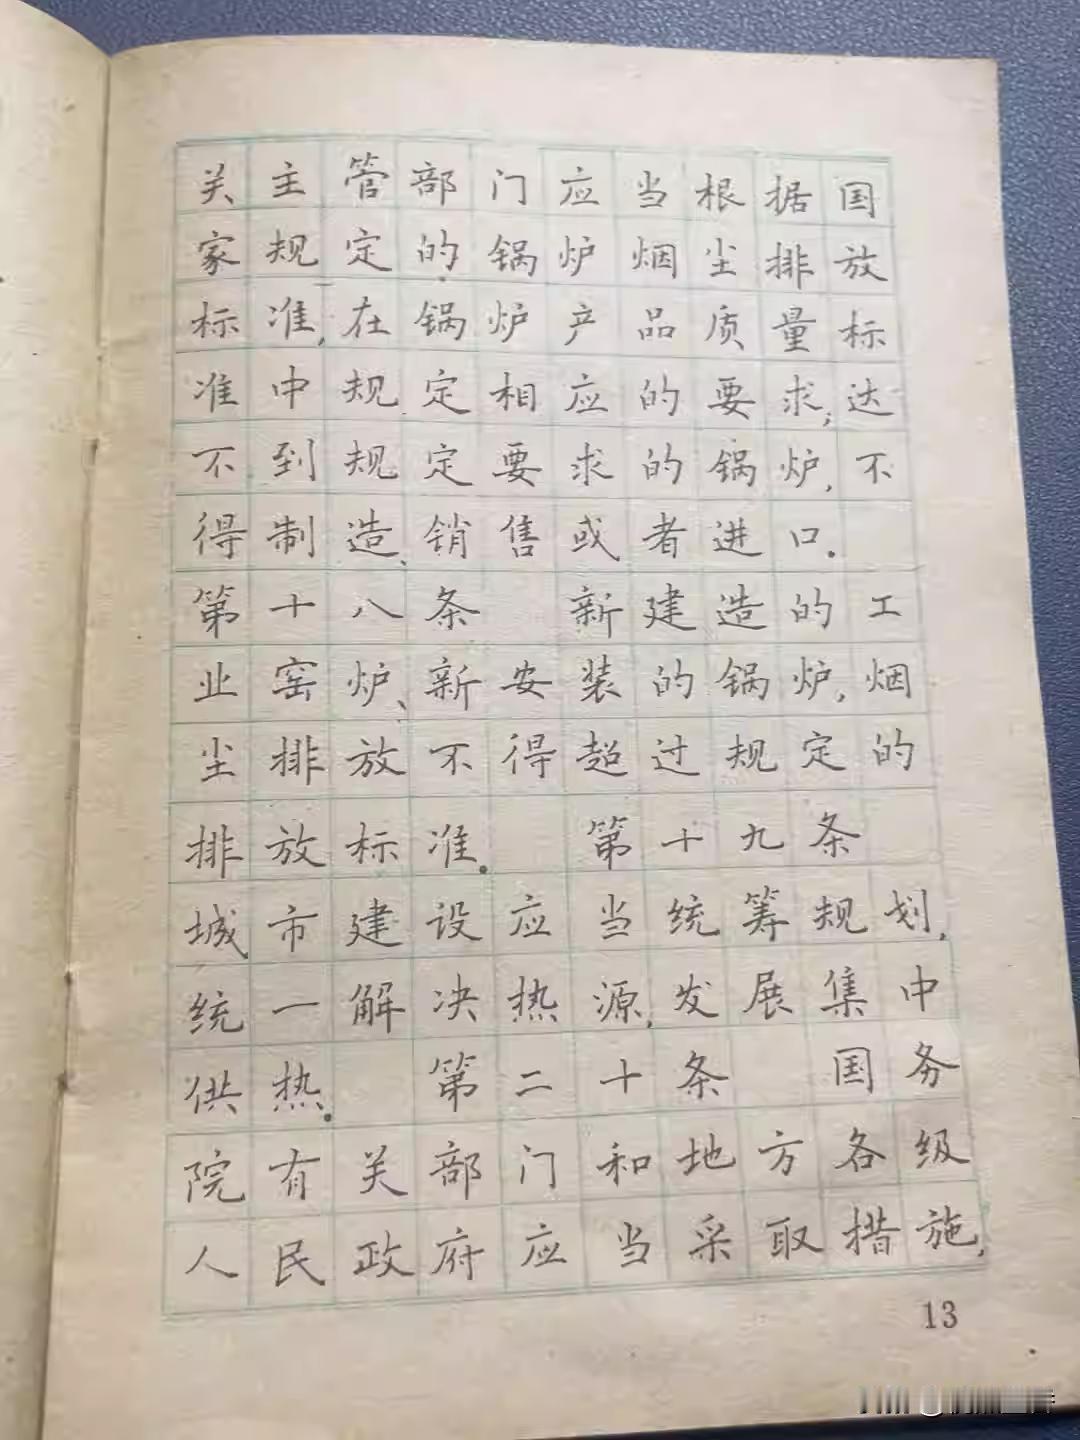 关主管部门应当根据国
家规定的锅炉烟尘排放
标准,在锅炉产品质量标
准中规定相应的要求;达
不到规定要求的锅炉,不
得制造、销售或者进口。
第十八条 新建造的工
业窑炉、新安装的锅炉,烟
尘排放不得超过规定的
排放标准。 第十九条
城市建设应当统筹规划,
统一解决热源,发展集中
供热。 第二十条 国务
院有关部门和地方各级
人民政府应当采取措施,
13